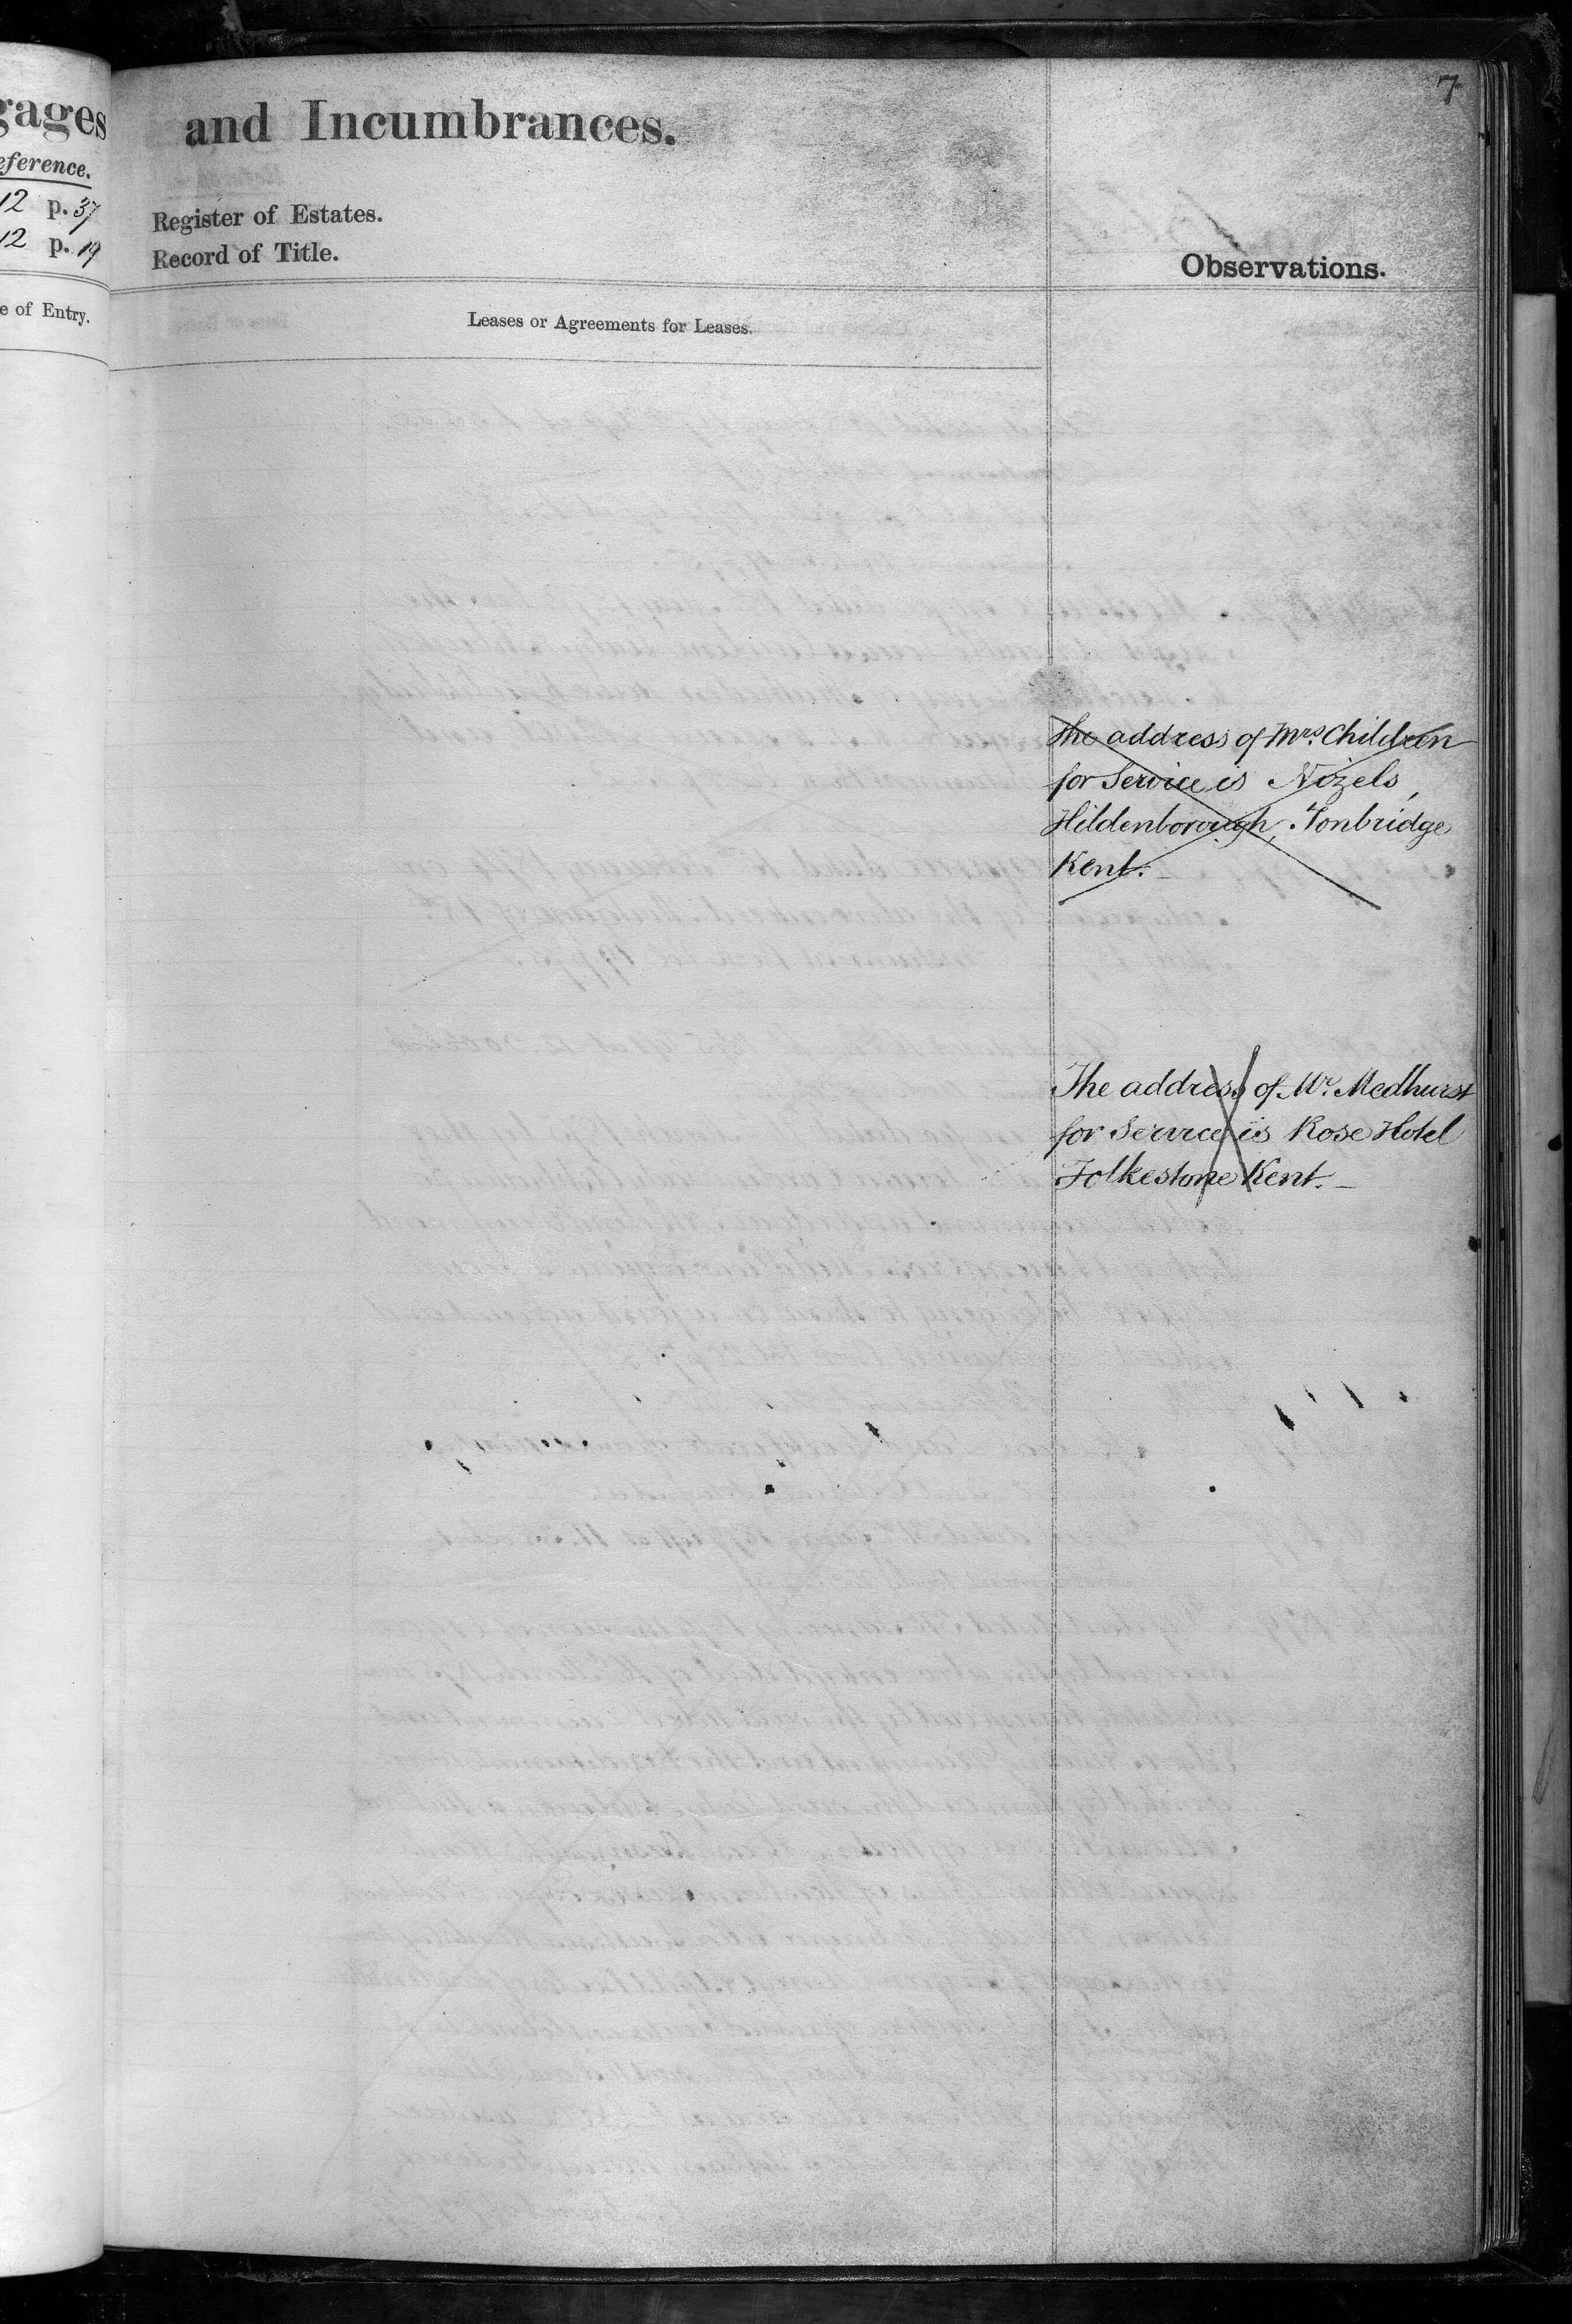 7
gages
eference.
12 p. 37
12 p. 19
e of Entry.
and Incumbrances.
Register of Estates.
Record of Title.
Observations.
Leases or Agreements for Leases.
The address of Mrs. Children
for Service is Nizels,
Hildenborough, Tonbridge
Kent. _
The address of Mr. Medhurst
for Service is Rose Hotel
Folkestone Kent. _